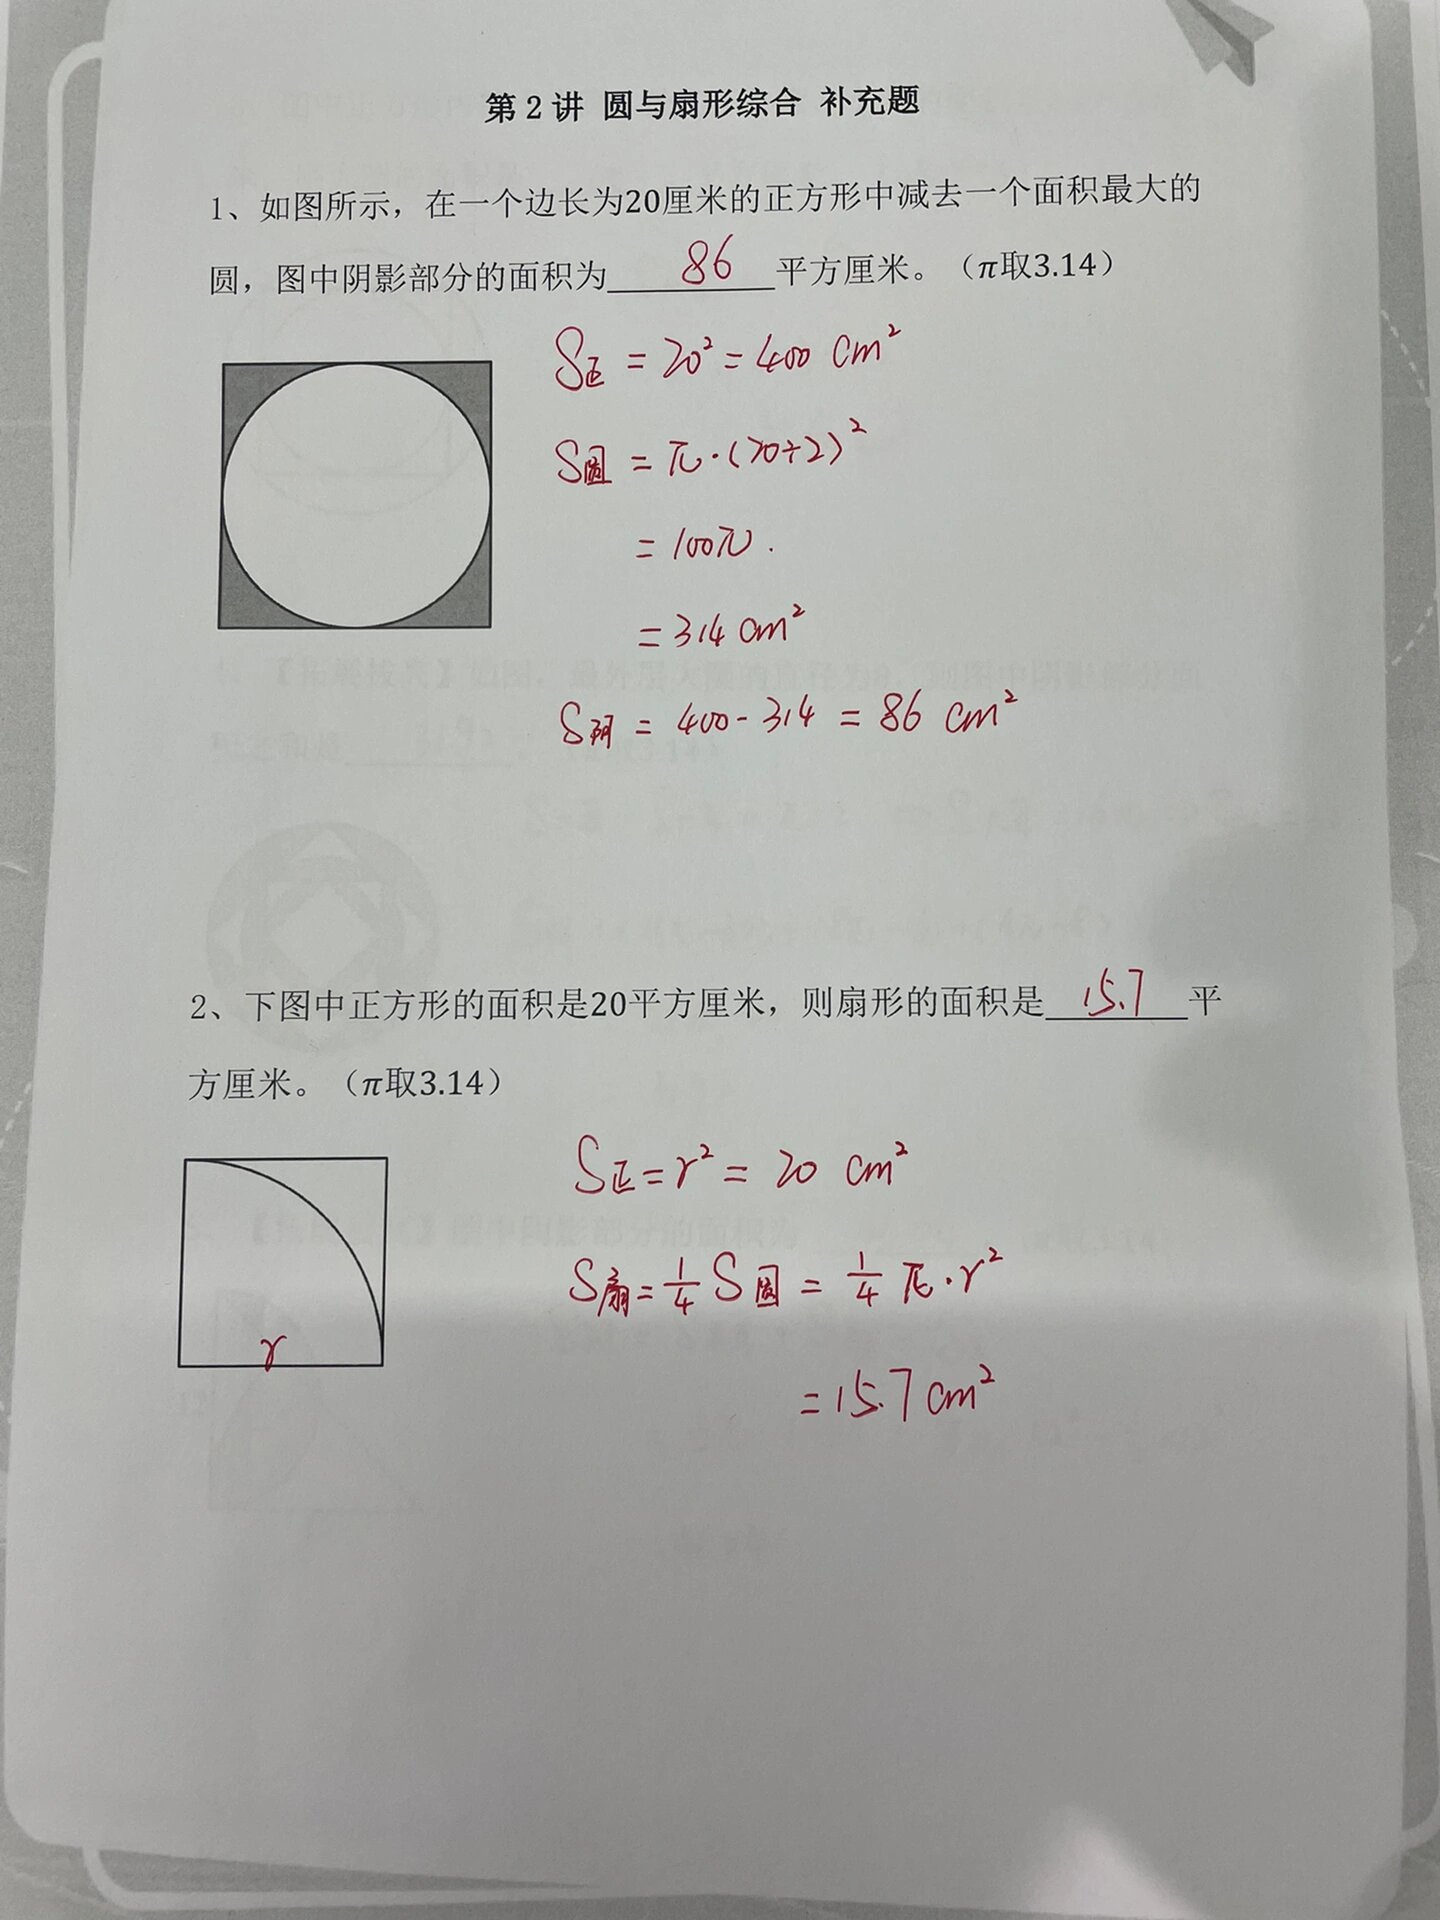 第 2 讲 圆与扇形综合 补充题
1、如图所示，在一个边长为20厘米的正方形中减去一个面积最大的
圆，图中阴影部分的面积为 86 平方厘米。（π取3.14）
S正 = 20² = 400 cm²
S圆 = π·(20÷2)²
= 100π.
= 314 cm²
S阴 = 400 - 314 = 86 cm²
2、下图中正方形的面积是20平方厘米，则扇形的面积是 15.7 平
方厘米。（π取3.14）
S正 = r² = 20 cm²
S扇 = 1/4 S圆 = 1/4 π·r²
r
= 15.7 cm²